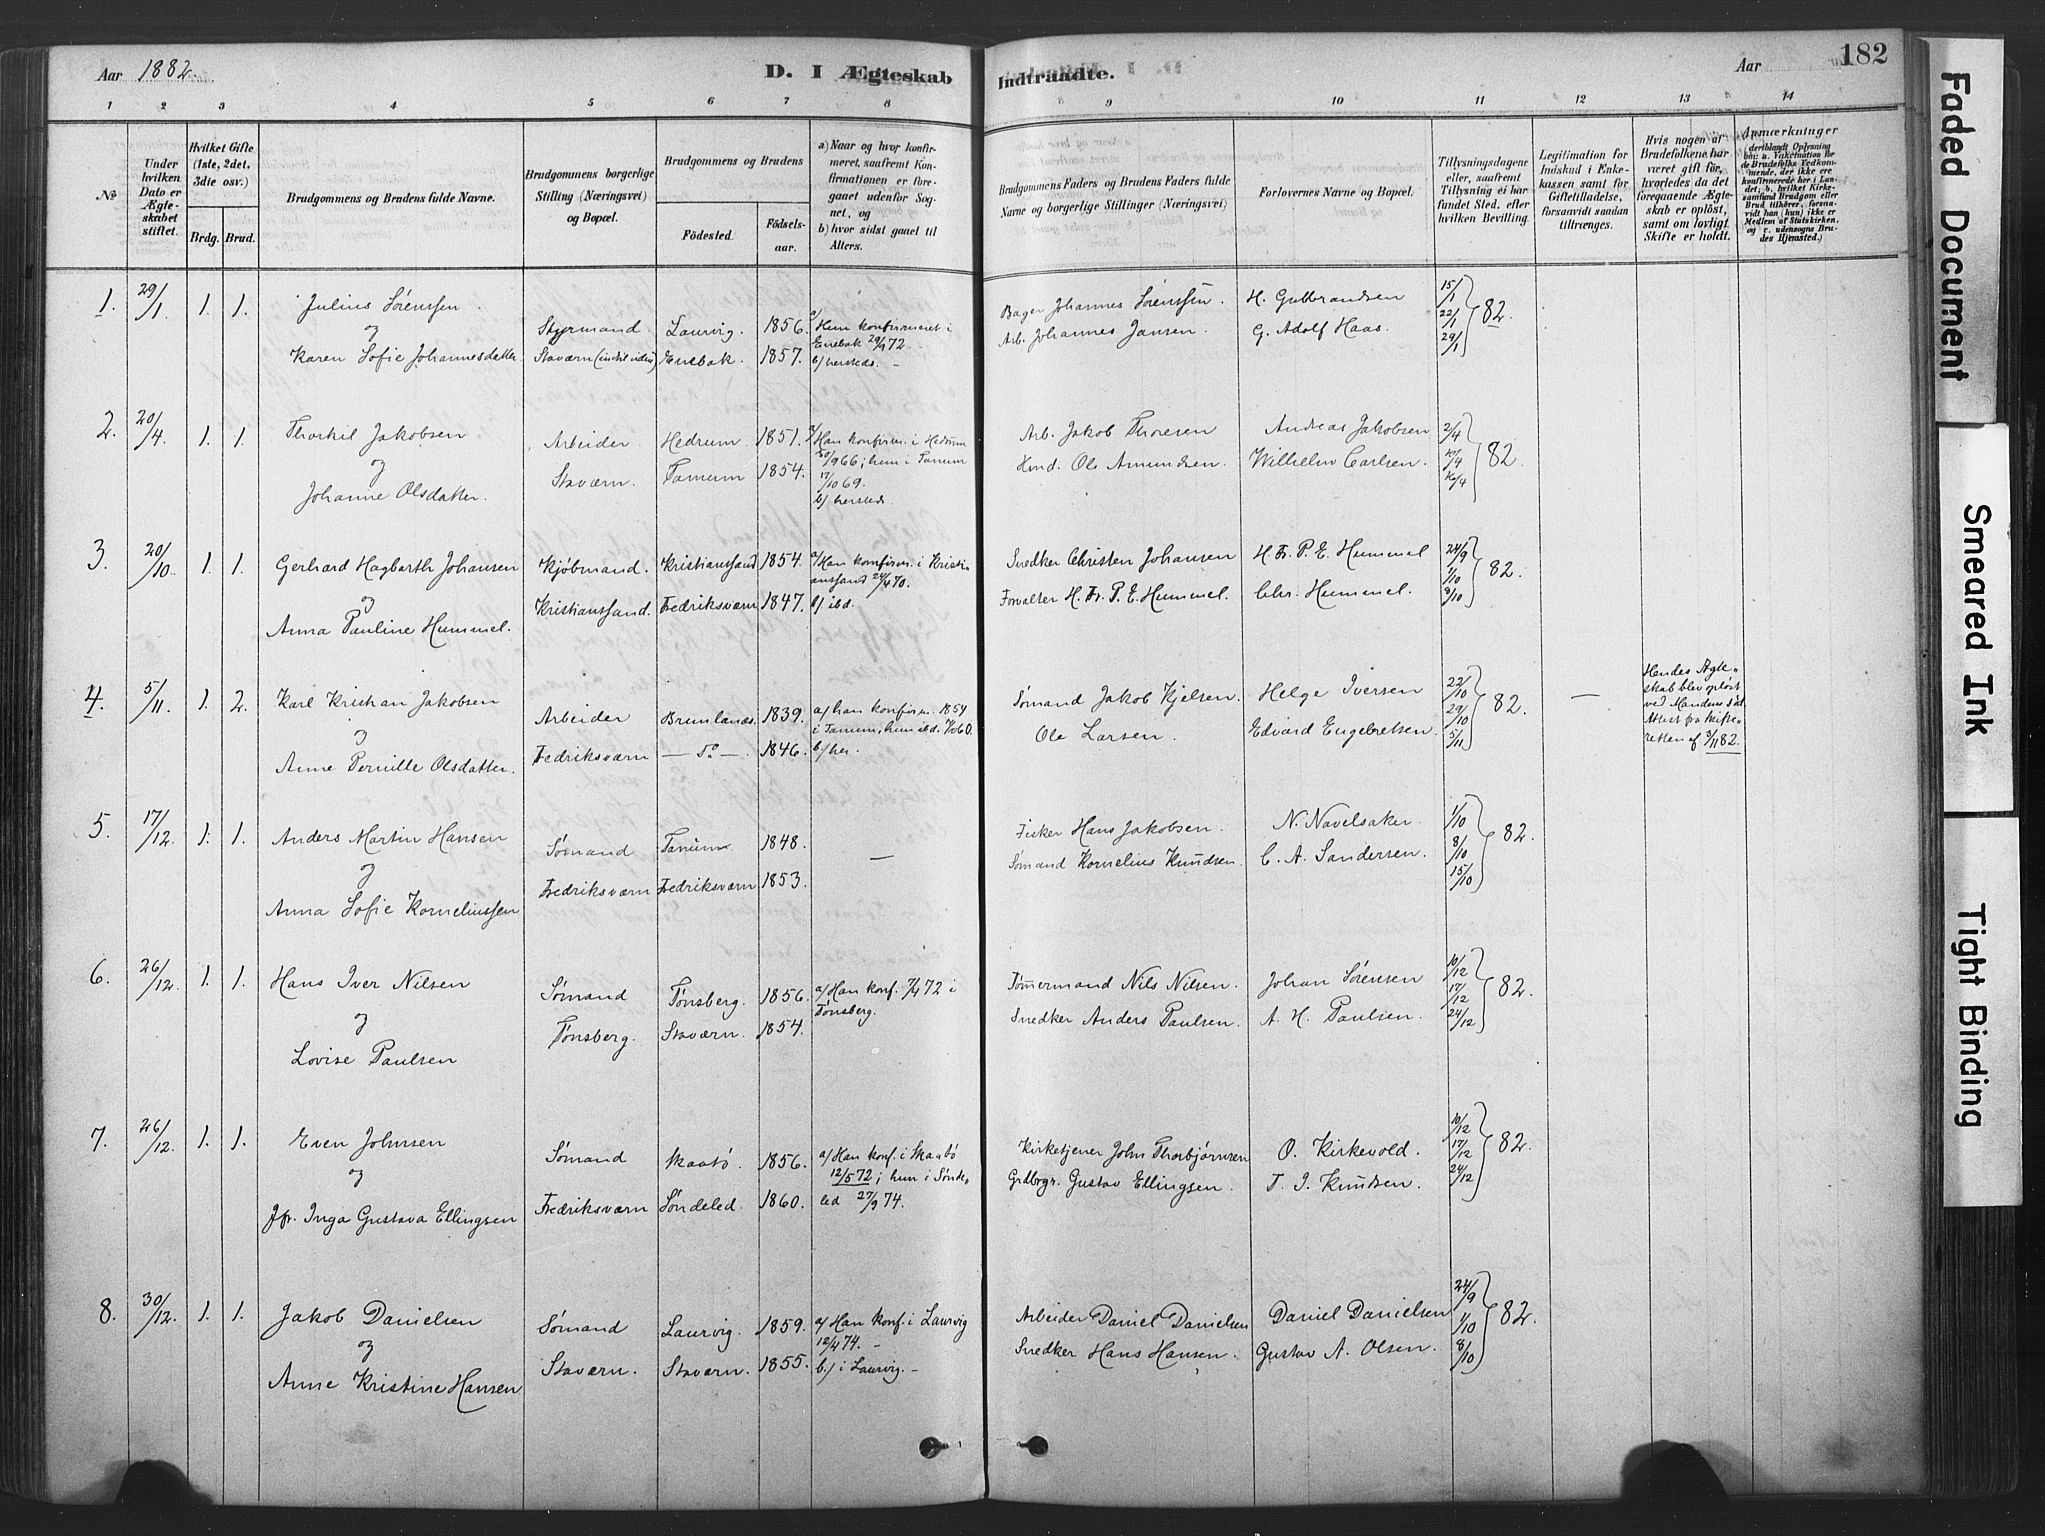 Aar 1882.
D. I Ægteskab
Indtraadte.
Aar
182
1 2 3 4 5 6 7 8 9 10 11 12 13 14
№
Under hvilken Dato er Ægteskabet stiftet.
Hvilket Gifte (1ste, 2det, 3die osv.)
Brdg. Brud.
Brudgommens og Brudens fulde Navne.
Brudgommens borgerlige Stilling (Næringsvei) og Bopæl.
Brudgommens og Brudens
Fødested.
Fødselsaar.
a) Naar og hvor konfirmeret, saafremt Konfirmationen er foregaaet udenfor Sognet, og
b) hvor sidst gaaet til Alters.
Brudgommens Faders og Brudens Faders fulde Navne og borgerlige Stillinger (Næringsvei)
Forlovernes Navne og Bopæl.
Tillysningsdagene eller, saafremt Tillysning ei har fundet Sted, efter hvilken Bevilling.
Legitimation for Indskud i Enkekassen samt for Giftetilladelse, forsaavidt saadan tiltrænges.
Hvis nogen af Brudefolkene har været gift før, hvorledes da det foregaaende Ægteskab er opløst, samt om lovligt Skifte er holdt.
Anmærkninger (deriblandt Oplysning om: a. Vakcination for de Brudefolks Vedkommende, der ikke ere konfirmerede her i Landet; b. hvilket Kirkesamfund Brudgom eller Brud tilhører, forsaavidt han (hun) ikke er Medlem af Statskirken, og c. udensogns Brudes Hjemsted.)
1. 29/1 1. 1. Julius Sørenssen Styrmand. Laurvig. 1856. a/ Hun konfirmeret i Bager Johannes Sørenssen. H. Gulbrandsen 15/1
og Enebak 29/9 72. Arb. Johannes Jansen. G. Adolf Haas. 22/1 82.
Karen Sofie Johannesdatter Staværn Enebak. 1857. b/ hersteds. 29/1
2. 20/4 1. 1. Thorkil Jakobsen Arbeider Hedrum. 1851. a/ Han konfirm. i Hedrum Arb. Jakob Thoresen Andreas Jakobsen 2/4
og Staværn. Tanum 1854. 30/9 66; hun i Tanum Kmd. Ole Amundsen. Wilhelm Carlsen. 10/4 82.
Johanne Olsdatter. 17/10 69. 16/4
b/ hersteds.
3. 20/10 1. 1. Gerhard Hagbarth Johansen Kjøbmand. Kristianssand 1854. a/ Han konfirm. i Kristi- Snedker Christen Johansen H. Fr. P. E. Hummel 24/9
og Kristianssand. Fredriksværn 1847. anssand 24/4 70. Forvalter H. Fr. P. E. Hummel. Chr. Hummel. 1/10 82.
Anna Pauline Hummel. b/ ibd. 8/10
4. 5/11. 1. 2. Karl Kristian Jakobsen Arbeider Brunlanæs. 1839. a/ han konfirm. 1854 Sømand Jakob Kjelsen. Helge Iversen 22/10 — Hendes Ægte-
og i Tanum, hun ibd. 7/10 60. Ole Larsen. Edvard Engebretsen. 29/10 82. skab blev opløst
Anne Pernille Olsdatter. Fredriksværn — do — 1846. b/ her. 5/11 ved Mandens död.
Attest fra Skifte-
retten af 3/11 82.
5. 17/12. 1. 1. Anders Martin Hansen Sømand Tanum 1848. — Fisker Hans Jakobsen. N. Navelsaker. 1/10
og Sømand Kornelius Knudsen. C. A. Sandersen. 8/10 82.
Anna Sofie Korneliussen Fredriksværn Fredriksværn 1853. 15/10
6. 26/12. 1. 1. Hans Iver Nilsen Sømand Tønsberg. 1856. a/ Han konf. 7/4 72 i Tømmermand Nils Nilsen. Johan Sørensen 10/12
og Tønsberg. Snedker Anders Paulsen. A. H. Paulsen. 17/12 82.
Lovise Paulsen Tønsberg. Staværn. 1854. 24/12
7. 26/12. 1. 1. Even Johnsen Sømand Skaatø. 1856. a/ Han konf. i Skaatø Kirketjener John Thorbjørnsen O. Kirkevold. 10/12
og 12/5 72; hun i Sønde- Grdbrgr. Gustav Ellingsen. T. I. Knudsen. 17/12 82.
Jfr. Inga Gustava Ellingsen Fredriksværn Søndeled. 1860. led 27/9 74. 24/12
8. 30/12. 1. 1. Jakob Danielsen Sømand Laurvig. 1859. a/ Han konf. i Laurvig Arbeider Daniel Danielsen Daniel Danielsen 24/9
og 12/4 74. Snedker Hans Hansen. Gustav A. Olsen. 1/10 82.
Anne Kristine Hansen Staværn. Staværn. 1855. b/ i Laurvig. 8/10
Faded Document
Smeared Ink
Tight Binding